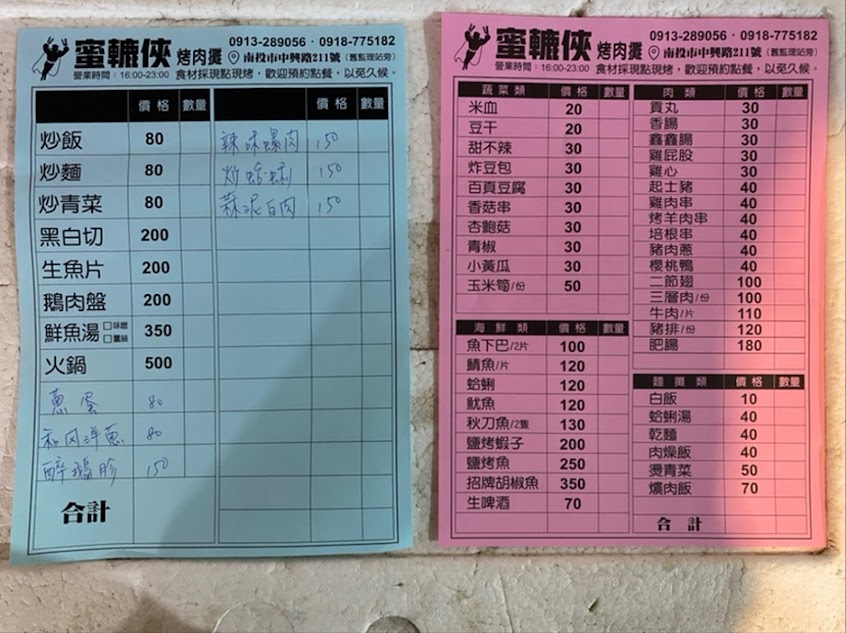 蜜轆俠 烤肉攤
0913-289056 · 0918-775182
南投市中興路211號(舊監理站旁)
營業時間：16:00-23:00 食材採現點現烤，歡迎預約點餐，以免久候。
價格 數量 價格 數量
炒飯 80 辣味螺肉 150
炒麵 80 炒蛤蜊 150
炒青菜 80 蒜泥白肉 150
黑白切 200
生魚片 200
鵝肉盤 200
鮮魚湯 □味噌 □薑絲 350
火鍋 500
蔥蛋 80
和风洋蔥 80
醉鵝胗 150
合計
蜜轆俠 烤肉攤
0913-289056 · 0918-775182
南投市中興路211號(舊監理站旁)
營業時間：16:00-23:00 食材採現點現烤，歡迎預約點餐，以免久候。
蔬菜類 價格 數量
米血 20
豆干 20
甜不辣 30
炸豆包 30
百頁豆腐 30
香菇串 30
杏鮑菇 30
青椒 30
小黃瓜 30
玉米筍/份 50
海鮮類 價格 數量
魚下巴/2片 100
鯖魚/片 120
蛤蜊 120
魷魚 120
秋刀魚/2隻 130
鹽烤蝦子 200
鹽烤魚 250
招牌胡椒魚 350
生啤酒 70
肉類 價格 數量
貢丸 30
香腸 30
鑫鑫腸 30
雞屁股 30
雞心 30
起士豬 40
雞肉串 40
烤羊肉串 40
培根串 40
豬肉蔥 40
櫻桃鴨 40
二節翅 100
三層肉/份 100
牛肉/片 110
豬排/份 120
肥腸 180
麵攤類 價格 數量
白飯 10
蛤蜊湯 40
乾麵 40
肉燥飯 40
燙青菜 50
爌肉飯 70
合計